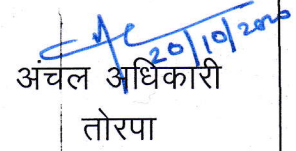 20/10/2020
अंचल अधिकारी
तोरपा